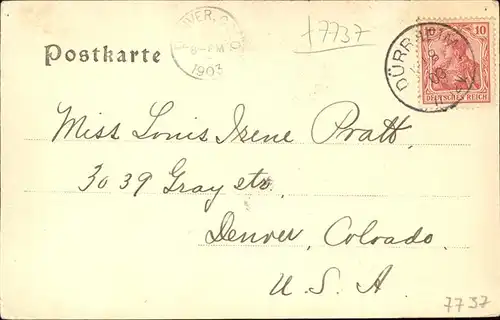 Postkarte
8-PM
1903
+7737
DÜRR
10
DEUTSCHES REICH
Miss Louis Irene Pratt,
3039 Gray str.
Denver, Colorado,
U. S. A
7737